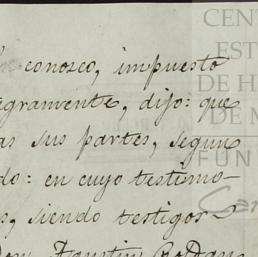 conosco, impuesto
egramente, dijo: que
as sus partes, segun
do: en cuyo testimo-
s, siendo testigos
Don Agustin Roldan
CEN
EST
DE H
DE M
FUN
Cen